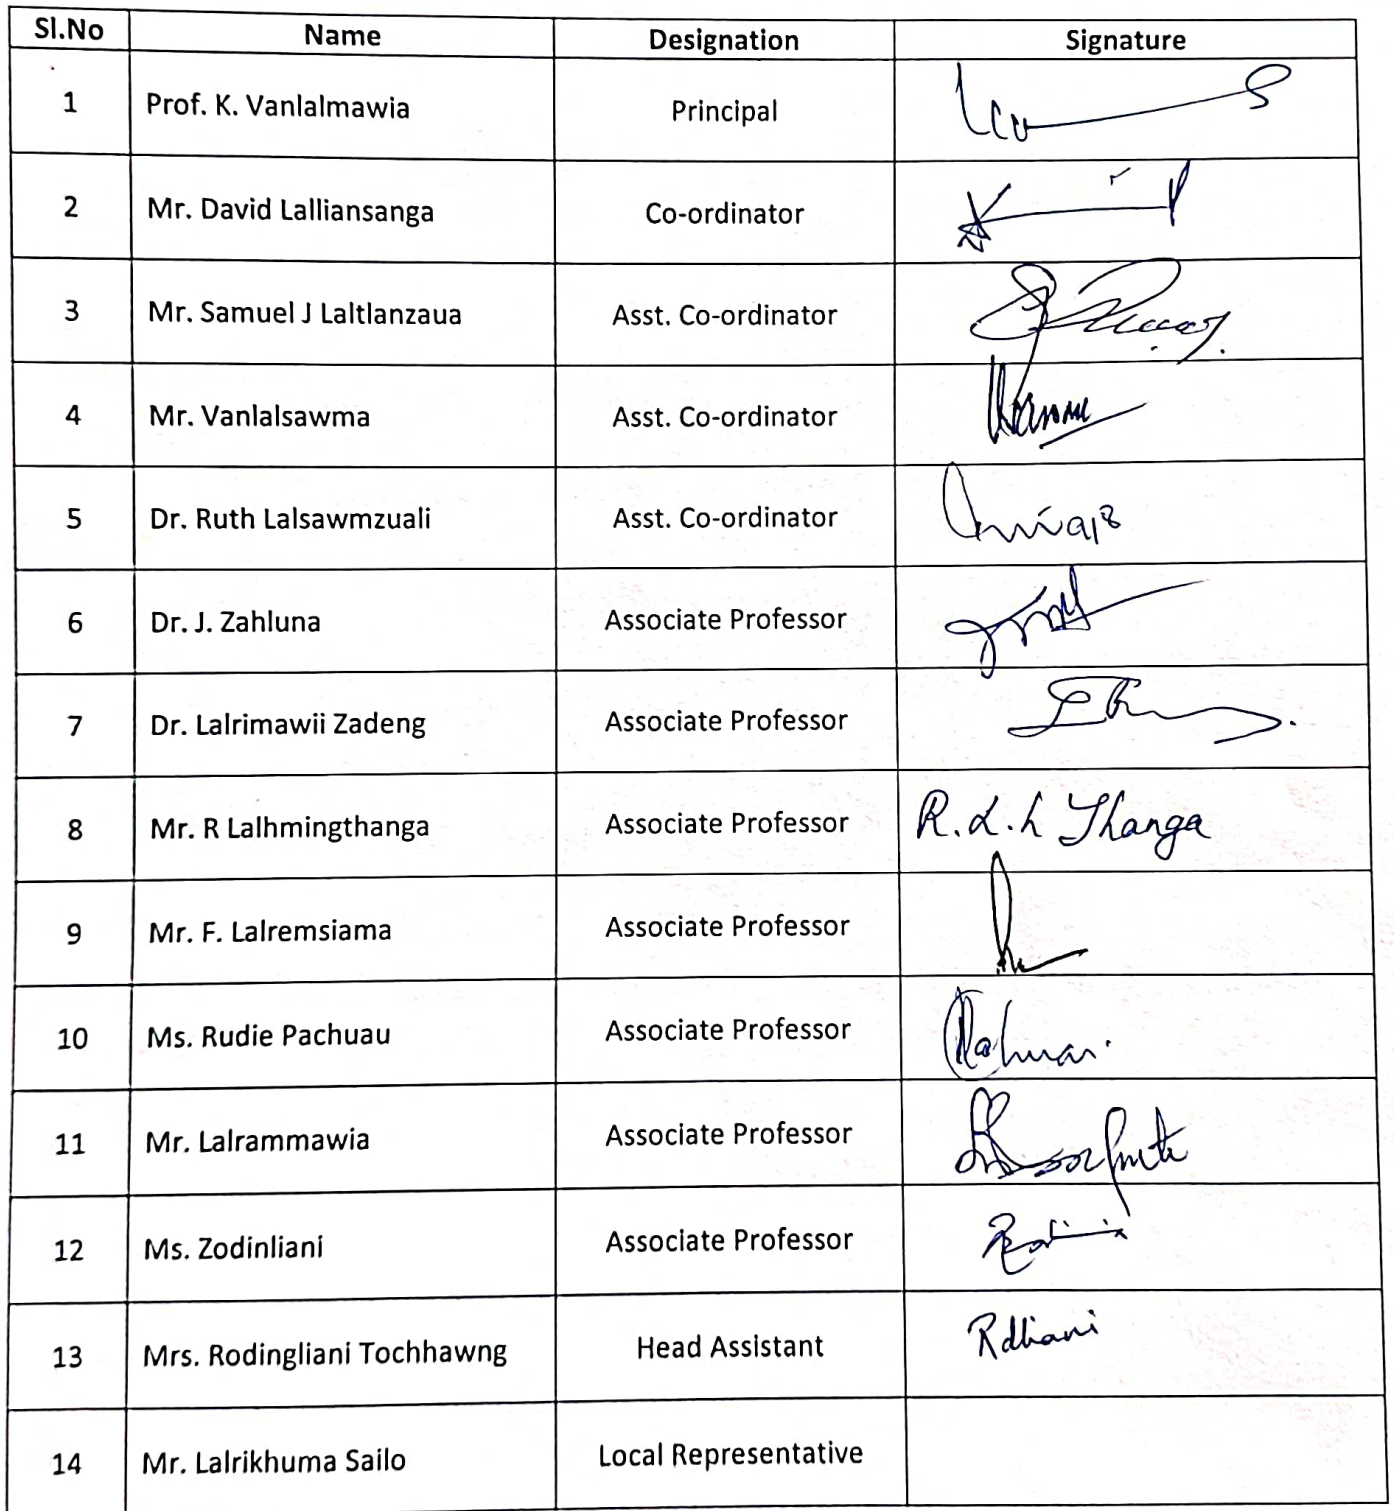 Sl.No Name Designation Signature
1 Prof. K. Vanlalmawia Principal
2 Mr. David Lalliansanga Co-ordinator
3 Mr. Samuel J Laltlanzaua Asst. Co-ordinator
4 Mr. Vanlalsawma Asst. Co-ordinator
5 Dr. Ruth Lalsawmzuali Asst. Co-ordinator
6 Dr. J. Zahluna Associate Professor
7 Dr. Lalrimawii Zadeng Associate Professor
8 Mr. R Lalhmingthanga Associate Professor R.L.h Thanga
9 Mr. F. Lalremsiama Associate Professor
10 Ms. Rudie Pachuau Associate Professor
11 Mr. Lalrammawia Associate Professor
12 Ms. Zodinliani Associate Professor
13 Mrs. Rodingliani Tochhawng Head Assistant Rdliani
14 Mr. Lalrikhuma Sailo Local Representative